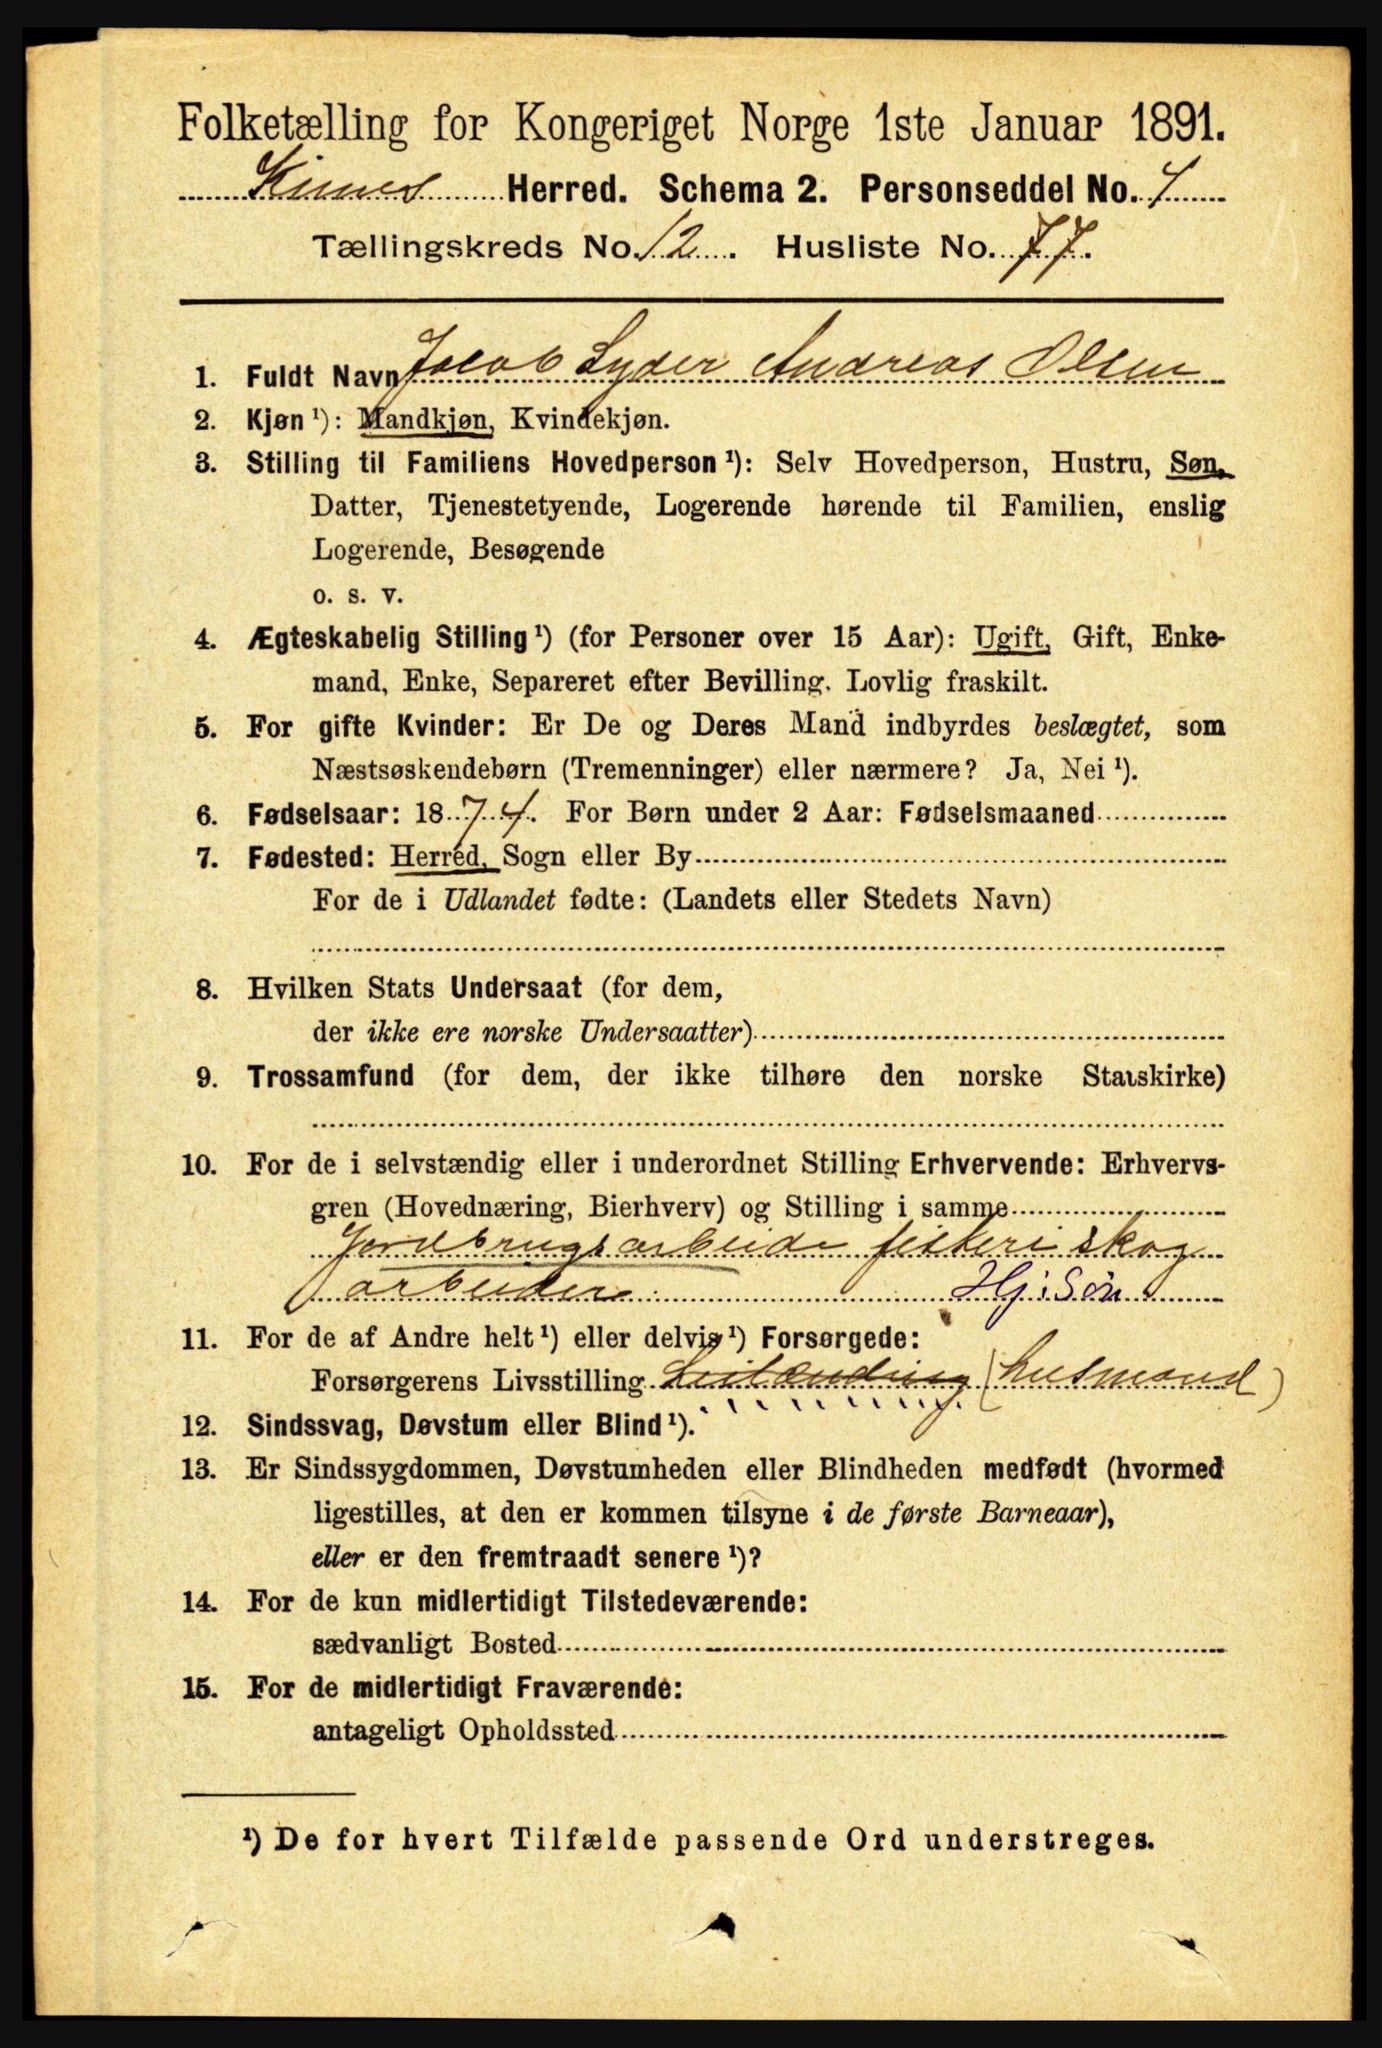 Folketælling for Kongeriget Norge 1ste Januar 1891.
Kinns Herred. Schema 2. Personseddel No. 4
Tællingskreds No. 12. Husliste No. 77.
1. Fuldt Navn Jacob Lyder Andreas Olsen
2. Kjøn¹): Mandkjøn, Kvindekjøn.
3. Stilling til Familiens Hovedperson¹): Selv Hovedperson, Hustru, Søn,
Datter, Tjenestetyende, Logerende hørende til Familien, enslig
Logerende, Besøgende
o. s. v.
4. Ægteskabelig Stilling¹) (for Personer over 15 Aar): Ugift, Gift, Enke-
mand, Enke, Separeret efter Bevilling. Lovlig fraskilt.
5. For gifte Kvinder: Er De og Deres Mand indbyrdes beslægtet, som
Næstsøskendebørn (Tremenninger) eller nærmere? Ja, Nei¹).
6. Fødselsaar: 1874. For Børn under 2 Aar: Fødselsmaaned
7. Fødested: Herred, Sogn eller By
For de i Udlandet fødte: (Landets eller Stedets Navn)
8. Hvilken Stats Undersaat (for dem,
der ikke ere norske Undersaatter)
9. Trossamfund (for dem, der ikke tilhøre den norske Statskirke)
10. For de i selvstændig eller i underordnet Stilling Erhvervende: Erhvervs-
gren (Hovednæring, Bierhverv) og Stilling i samme
Jordbrugsarbeide fiskeri skog
arbeider Hj: Søn
11. For de af Andre helt¹) eller delvis¹) Forsørgede:
Forsørgerens Livsstilling Leilænding (husmand)
12. Sindssvag, Døvstum eller Blind¹).
13. Er Sindssygdommen, Døvstumheden eller Blindheden medfødt (hvormed
ligestilles, at den er kommen tilsyne i de første Barneaar),
eller er den fremtraadt senere¹)?
14. For de kun midlertidigt Tilstedeværende:
sædvanligt Bosted
15. For de midlertidigt Fraværende:
antageligt Opholdssted
¹) De for hvert Tilfælde passende Ord understreges.